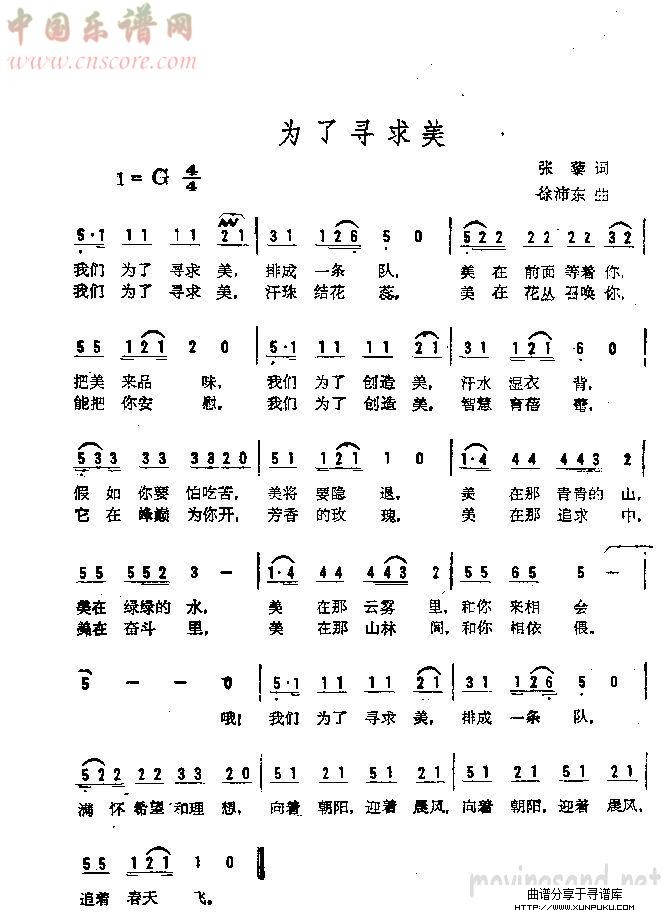 中国乐谱网
www.cnscore.com
为了寻求美
1=G 4/4
张藜 词
徐沛东 曲
5·1 11 11 21 | 31 126 5 0 | 522 22 22 32 |
我们 为了 寻求 美，排成 一条 队， 美在 前面 等着 你，
我们 为了 寻求 美，汗珠 结花 蕊。 美在 花丛 召唤 你，
55 121 2 0 | 5·1 11 11 21 | 31 121 6 0 |
把美 来品 味， 我们 为了 创造 美，汗水 湿衣 背，
能把 你安 慰， 我们 为了 创造 美，智慧 育蓓 蕾，
533 33 33 3320 | 51 121 1 0 | 1·4 44 443 2 |
假如 你要 怕吃苦，美将 要隐 退， 美 在那 青青的 山，
它在 峰巅 为你开，芳香 的玫 瑰， 美 在那 追求 中，
55 552 3 － | 1·4 44 443 2 | 55 65 5 －
美在 绿绿的 水， 美 在那 云雾 里，和你 来相 会
美在 奋斗 里， 美 在那 山林 间，和你 相依 偎。
5 － － 0 | 5·1 11 11 21 | 31 126 5 0 |
哦！我们 为了 寻求 美，排成 一条 队，
522 22 33 20 | 51 21 51 21 | 51 21 51 21 |
满怀 希望 和理 想，向着 朝阳，迎着 晨风，向着 朝阳，迎着 晨风，
55 121 1 0
追着 春天 飞。
movingsand.net
曲谱分享于寻谱库
WWW.XUNPUKU.COM